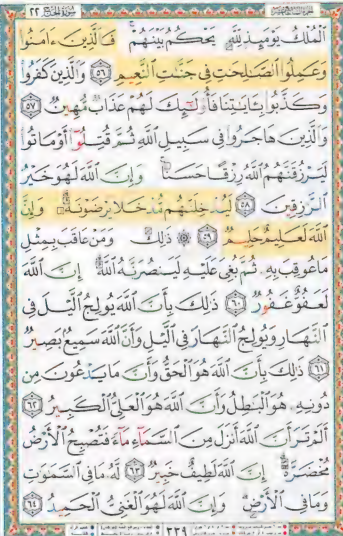 سورة الحج ٢٢
الْمُلْكُ يَوْمَئِذٍ لِلَّهِ يَحْكُمُ بَيْنَهُمْ فَالَّذِينَ ءَامَنُوا
وَعَمِلُوا الصَّلِحَتِ فِي جَنَّتِ النَّعِيمِ ٥٦ وَالَّذِينَ كَفَرُوا
وَكَذَّبُوا بِـَٔايَتِنَا فَأُولَئِكَ لَهُمْ عَذَابٌ مُهِينٌ ٥٧
وَالَّذِينَ هَاجَرُوا فِي سَبِيلِ اللَّهِ ثُمَّ قُتِلُوا أَوْ مَاتُوا
لَيَرْزُقَنَّهُمُ اللَّهُ رِزْقًا حَسَنًا وَإِنَّ اللَّهَ لَهُوَ خَيْرُ
الرَّزِقِينَ ٥٨ لَيُدْخِلَنَّهُمْ مُدْخَلًا يَرْضَوْنَهُ وَإِنَّ
اللَّهَ لَعَلِيمٌ حَلِيمٌ ٥٩ ۞ ذَلِكَ وَمَنْ عَاقَبَ بِمِثْلِ
مَا عُوقِبَ بِهِ ثُمَّ بُغِيَ عَلَيْهِ لَيَنْصُرَنَّهُ اللَّهُ إِنَّ اللَّهَ
لَعَفُوٌّ غَفُورٌ ٦٠ ذَلِكَ بِأَنَّ اللَّهَ يُولِجُ الَّيْلَ فِي
النَّهَارِ وَيُولِجُ النَّهَارَ فِي الَّيْلِ وَأَنَّ اللَّهَ سَمِيعٌ بَصِيرٌ
٦١ ذَلِكَ بِأَنَّ اللَّهَ هُوَ الْحَقُّ وَأَنَّ مَا يَدْعُونَ مِن
دُونِهِ هُوَ الْبَطِلُ وَأَنَّ اللَّهَ هُوَ الْعَلِيُّ الْكَبِيرُ ٦٢
أَلَمْ تَرَ أَنَّ اللَّهَ أَنْزَلَ مِنَ السَّمَاءِ مَاءً فَتُصْبِحُ الْأَرْضُ
مُخْضَرَّةً إِنَّ اللَّهَ لَطِيفٌ خَبِيرٌ ٦٣ لَهُ مَا فِي السَّمَوَتِ
وَمَا فِي الْأَرْضِ وَإِنَّ اللَّهَ لَهُوَ الْغَنِيُّ الْحَمِيدُ ٦٤
٣٣٩